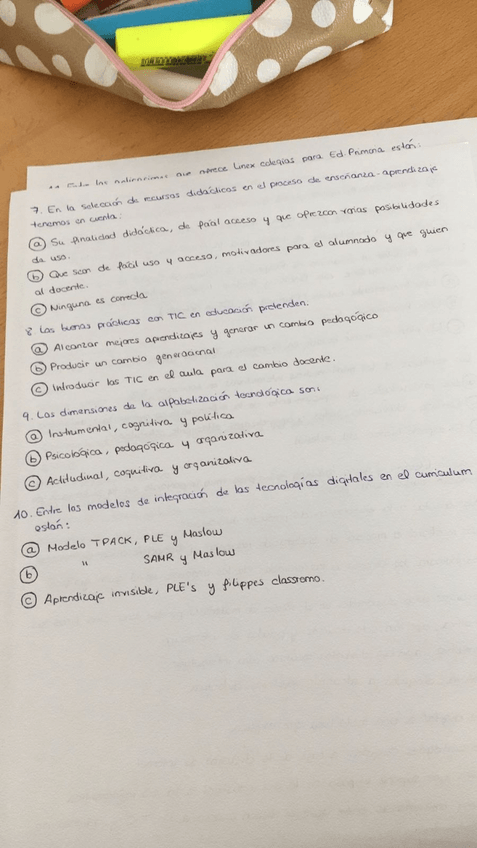 que ofrece Linex colegios para Ed. Primaria están:
7. En la selección de recursos didácticos en el proceso de enseñanza-aprendizaje
tenemos en cuenta:
a Su finalidad didáctica, de fácil acceso y que ofrezcan varias posibilidades
de uso.
b Que sean de fácil uso y acceso, motivadores para el alumnado y que guien
al docente.
c Ninguna es correcta
8 Las buenas prácticas con TIC en educación pretenden.
a Alcanzar mejores aprendizajes y generar un cambio pedagógico
b Producir un cambio generacional
c Introducir las TIC en el aula para el cambio docente.
9. Las dimensiones de la alfabetización tecnológica son:
a Instrumental, cognitiva y política
b Psicológica, pedagógica y organizativa
c Actitudinal, cognitiva y organizativa
10. Entre los modelos de integración de las tecnologías digitales en el currículum
están:
a Modelo TPACK, PLE y Maslow
b " SAMR y Maslow
c Aprendizaje invisible, PLE's y filippes classromo.